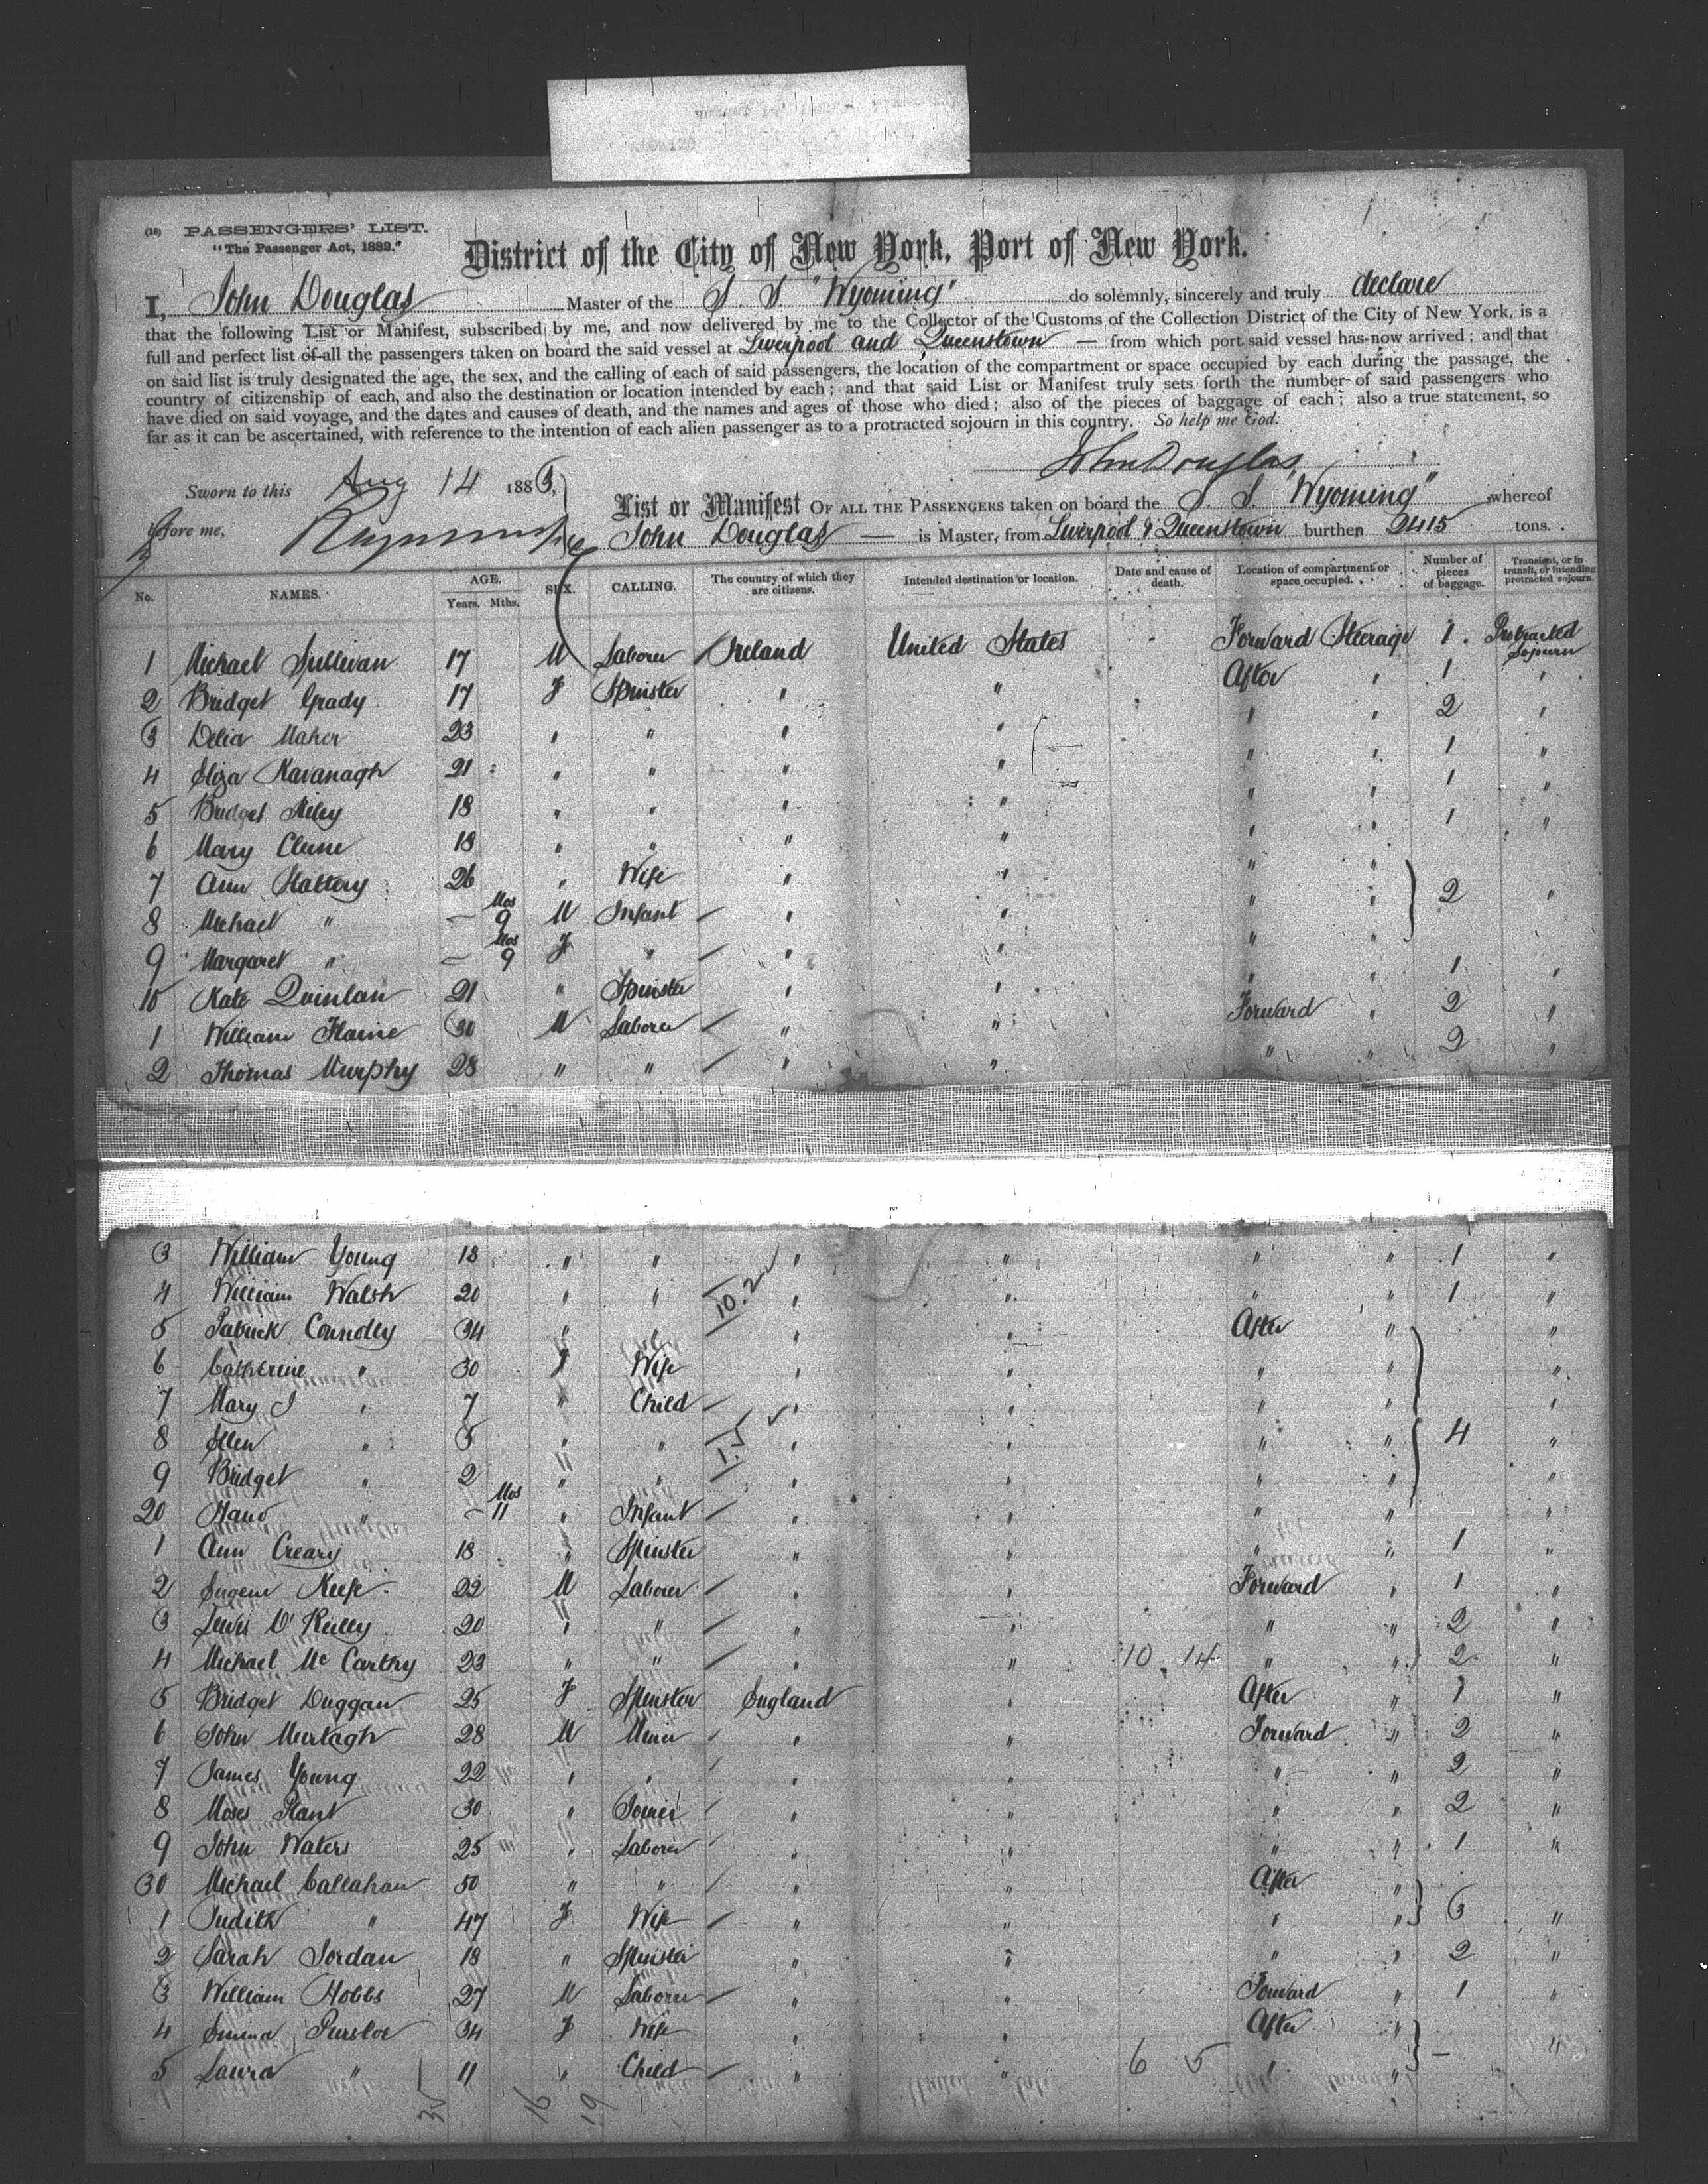 (18) PASSENGERS' LIST.
"The Passenger Act, 1882."
District of the City of New York, Port of New York.
I, John Douglas Master of the S. S. "Wyoming" do solemnly, sincerely and truly declare
that the following List or Manifest, subscribed by me, and now delivered by me to the Collector of the Customs of the Collection District of the City of New York, is a
full and perfect list of all the passengers taken on board the said vessel at Liverpool and Queenstown — from which port said vessel has now arrived; and that
on said list is truly designated the age, the sex, and the calling of each of said passengers, the location of the compartment or space occupied by each during the passage, the
country of citizenship of each, and also the destination or location intended by each; and that said List or Manifest truly sets forth the number of said passengers who
have died on said voyage, and the dates and causes of death, and the names and ages of those who died; also of the pieces of baggage of each; also a true statement, so
far as it can be ascertained, with reference to the intention of each alien passenger as to a protracted sojourn in this country. So help me God.
John Douglas
Sworn to this Aug 14 1883,
before me,
List or Manifest OF ALL THE PASSENGERS taken on board the S. S. "Wyoming" whereof
John Douglas — is Master, from Liverpool & Queenstown burthen 2415 tons.
No. NAMES. AGE. Years. Mths. SEX. CALLING. The country of which they are citizens. Intended destination or location. Date and cause of death. Location of compartment or space occupied. Number of pieces of baggage. Transient, or in transit, or intending protracted sojourn.
1 Michael Sullivan 17 M Laborer Ireland United States Forward Steerage 1 Protracted Sojourn
2 Bridget Grady 17 F Spinster " " After " 1 "
3 Delia Maher 23 " " " " " " 2 "
4 Eliza Kavanagh 21 " " " " " " 1 "
5 Bridget Riley 18 " " " " " " 1 "
6 Mary Clune 18 " " " " " " 1 "
7 Ann Slattery 26 " Wife " " " "
8 Michael " — Mos 9 M Infant " " " " 2 "
9 Margaret " — Mos 9 F " " " " "
10 Kate Quinlan 21 " Spinster " " " 1 "
1 William 30 M Laborer " " Forward " 2 "
2 Thomas Murphy 28 " " " " " " 2 "
3 William Young 18 " " " " " " 1 "
4 William Walsh 20 " " 10.2 " " " 1 "
5 Patrick Connolly 34 " " " " After " "
6 Catherine " 30 F Wife " " " " "
7 Mary J " 7 " Child " " " " "
8 Ellen " 5 " " 1.5 " " " " 4 "
9 Bridget " 2 " " " " " " "
20 " — Mos 11 " Infant " " " "
1 Ann Creary 18 " Spinster " " " " 1 "
2 Eugene Keefe 22 M Laborer " " Forward " 1 "
3 Lewis O'Reilly 20 " " " " " " 2 "
4 Michael McCarthy 23 " " " " 10 14 " " 2 "
5 Bridget Duggan 25 F Spinster England " After " 1 "
6 John Murtagh 28 M Miner " " Forward " 2 "
7 James Young 22 " " " " " " 2 "
8 Moses Plant 30 " Joiner " " " " 2 "
9 John Waters 25 " Laborer " " " " 1 "
30 Michael Callahan 50 " " " " After "
1 Judith " 47 F Wife " " " " 3 "
2 Sarah Jordan 18 " Spinster " " " " 2 "
3 William Hobbs 27 M Laborer " " Forward " 1 "
4 Emma Pursloe 34 F Wife " " After "
5 Laura " 11 " Child " " 6 5 " " — "
35 16 19